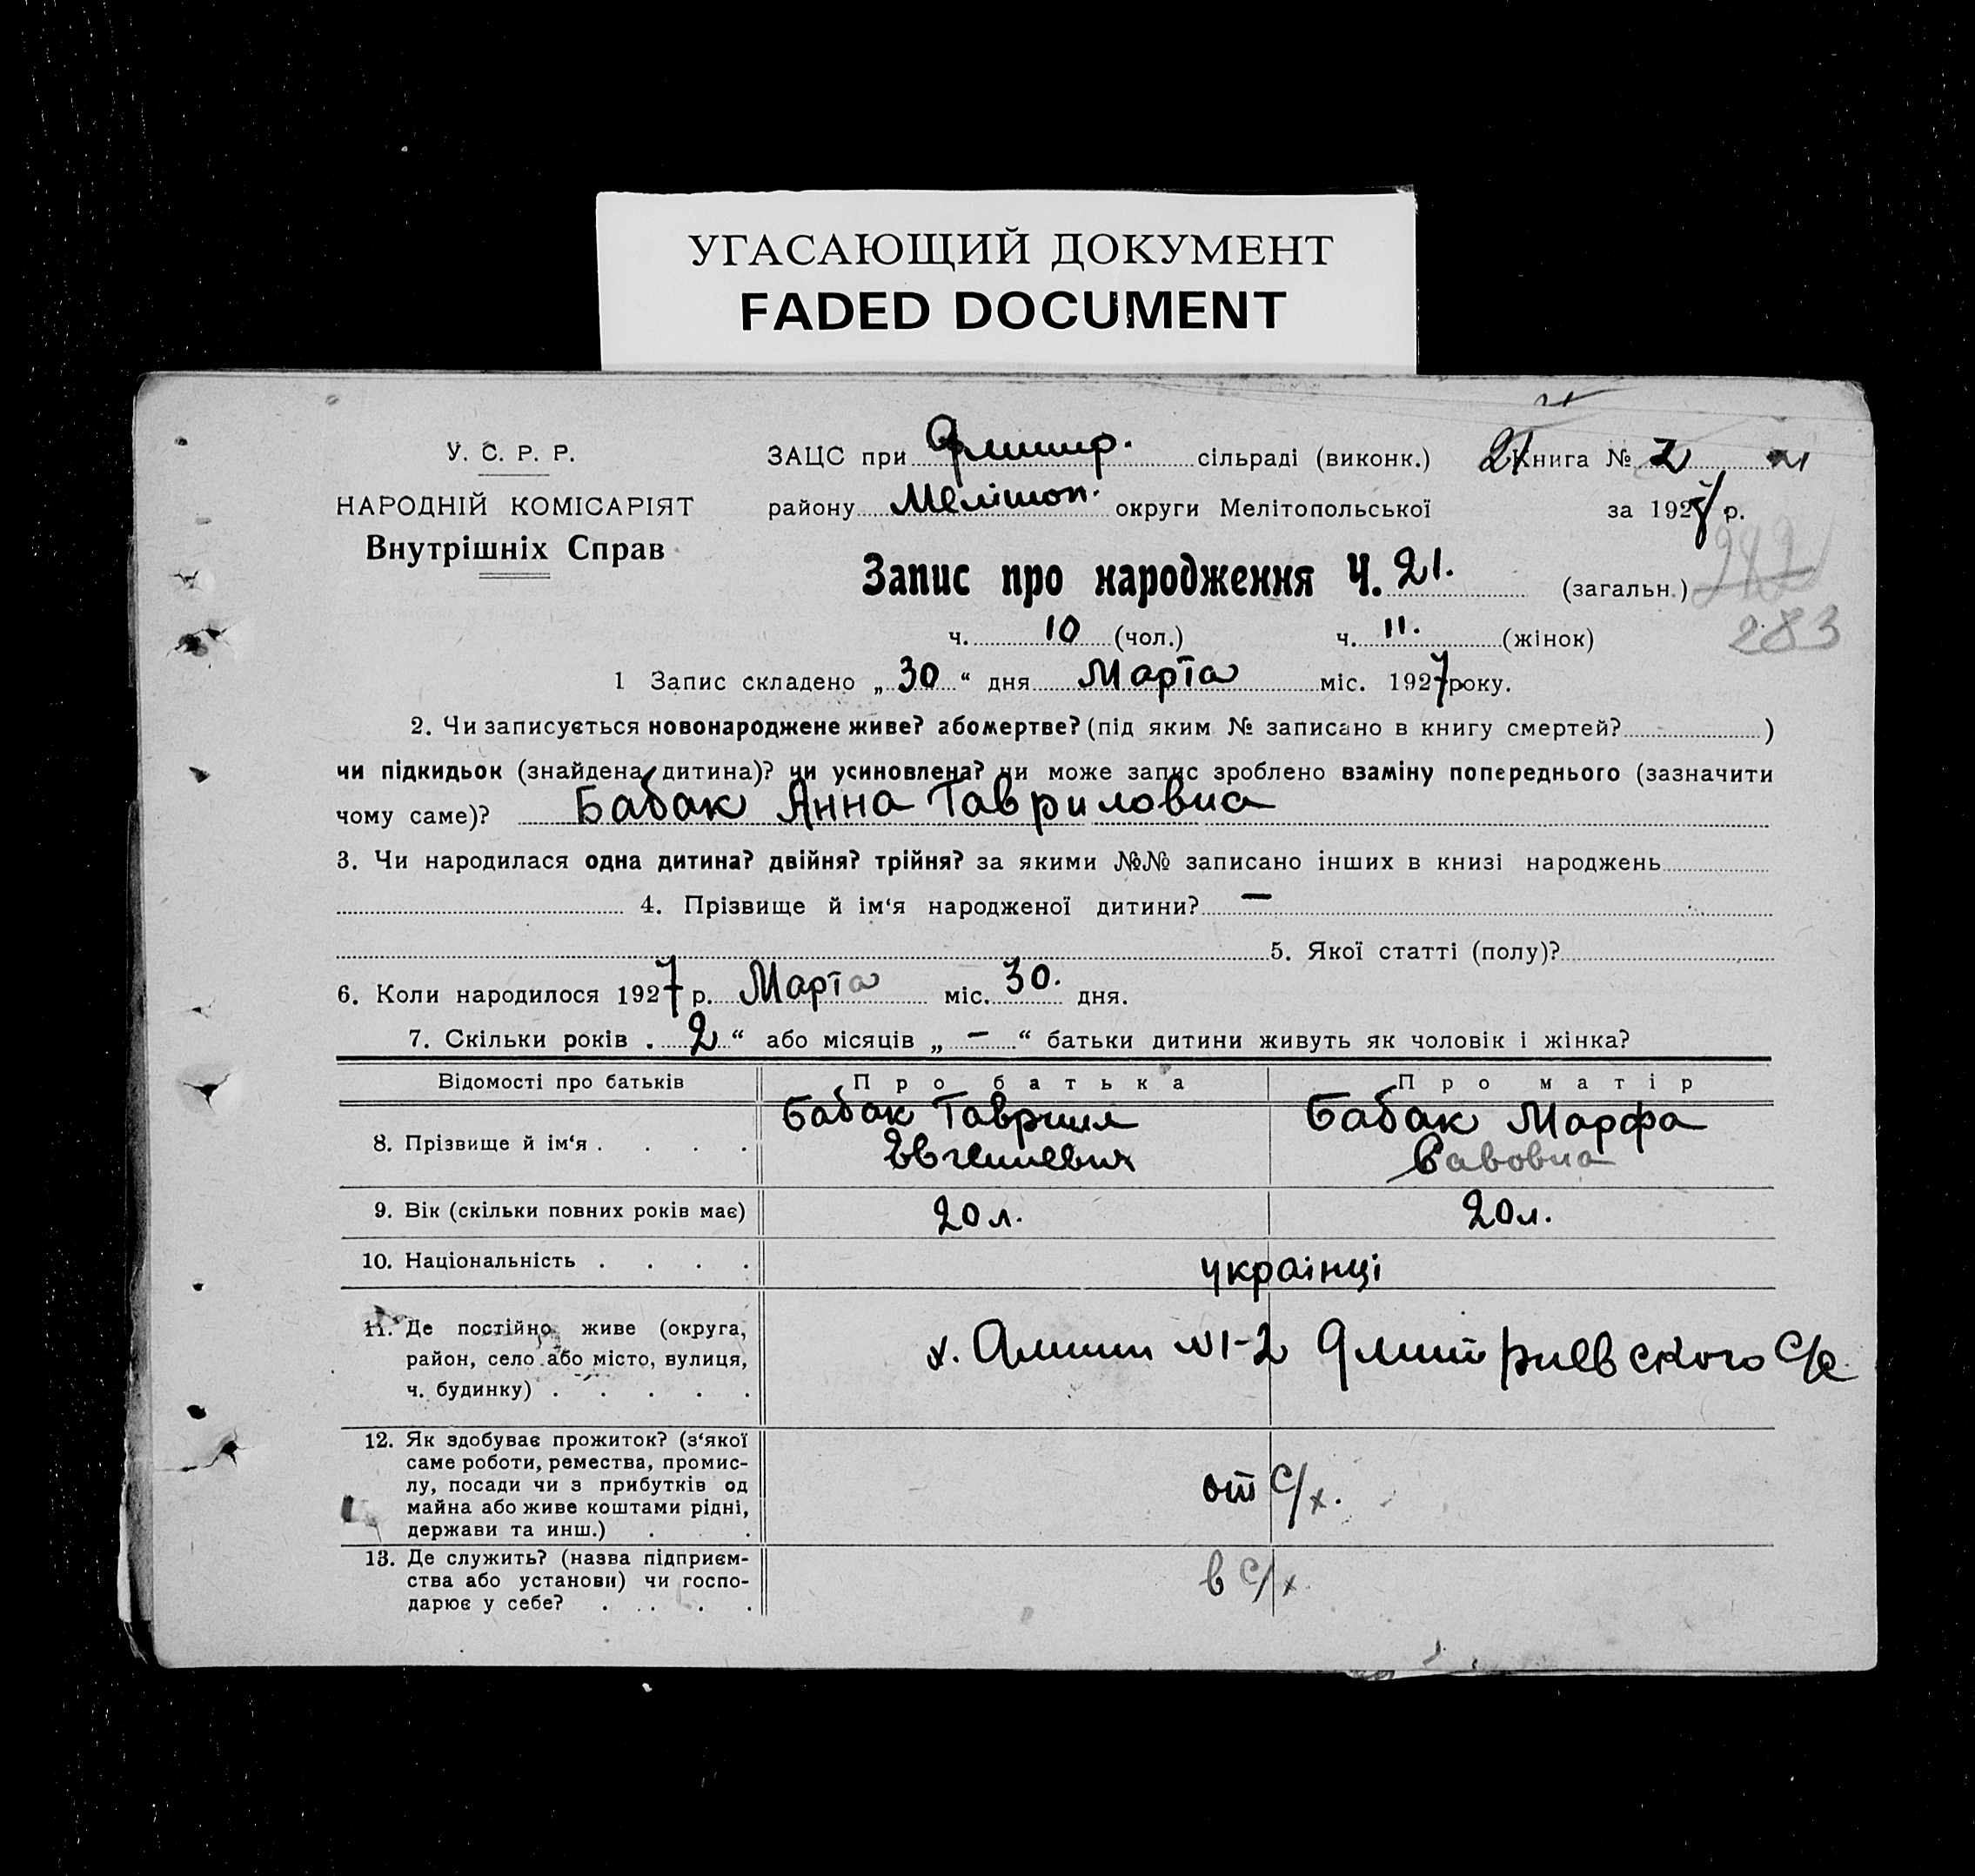 УГАСАЮЩИЙ ДОКУМЕНТ
FADED DOCUMENT
У. С. Р. Р.
НАРОДНІЙ КОМІСАРІЯТ
Внутрішніх Справ
ЗАЦС при Дмитр. сільраді (виконк.) 21 Книга № 2 21
району Мелітоп. округи Мелітопольської за 1927 р.
Запис про народження Ч. 21. (загальн.) 282
283
ч. 10 (чол.) ч. 11. (жінок)
1 Запис складено „ 30 “ дня Марта міс. 1927 року.
2. Чи записується новонароджене живе? або мертве? (під яким № записано в книгу смертей? )
чи підкидьок (знайдена дитина)? чи усиновлена? чи може запис зроблено взаміну попереднього (зазначити
чому саме)? Бабак Анна Гавриловна
3. Чи народилася одна дитина? двійня? трійня? за якими №№ записано інших в книзі народжень
4. Прізвище й ім‘я народженої дитини? —
5. Якої статті (полу)?
6. Коли народилося 1927 р. Марта міс. 30. дня.
7. Скільки років „ 2 “ або місяців „ — “ батьки дитини живуть як чоловік і жінка?
Відомості про батьків Про батька Про матір
8. Прізвище й ім‘я . . . . Бабак Гавриил Бабак Марфа
Евгениевич Савовна
9. Вік (скільки повних років має) 20 л. 20 л.
10. Національність . . . . українці
11. Де постійно живе (округа,
район, село або місто, вулиця,
ч. будинку) . . . . .
х. №1-2 Дмитриевского С/с.
12. Як здобуває прожиток? (з‘якої
саме роботи, ремества, промис-
лу, посади чи з прибутків од
майна або живе коштами рідні,
держави та инш.) . .
от С/х.
13. Де служить? (назва підприєм-
ства або установи) чи госпо-
дарює у себе? . . . . .
в С/х.